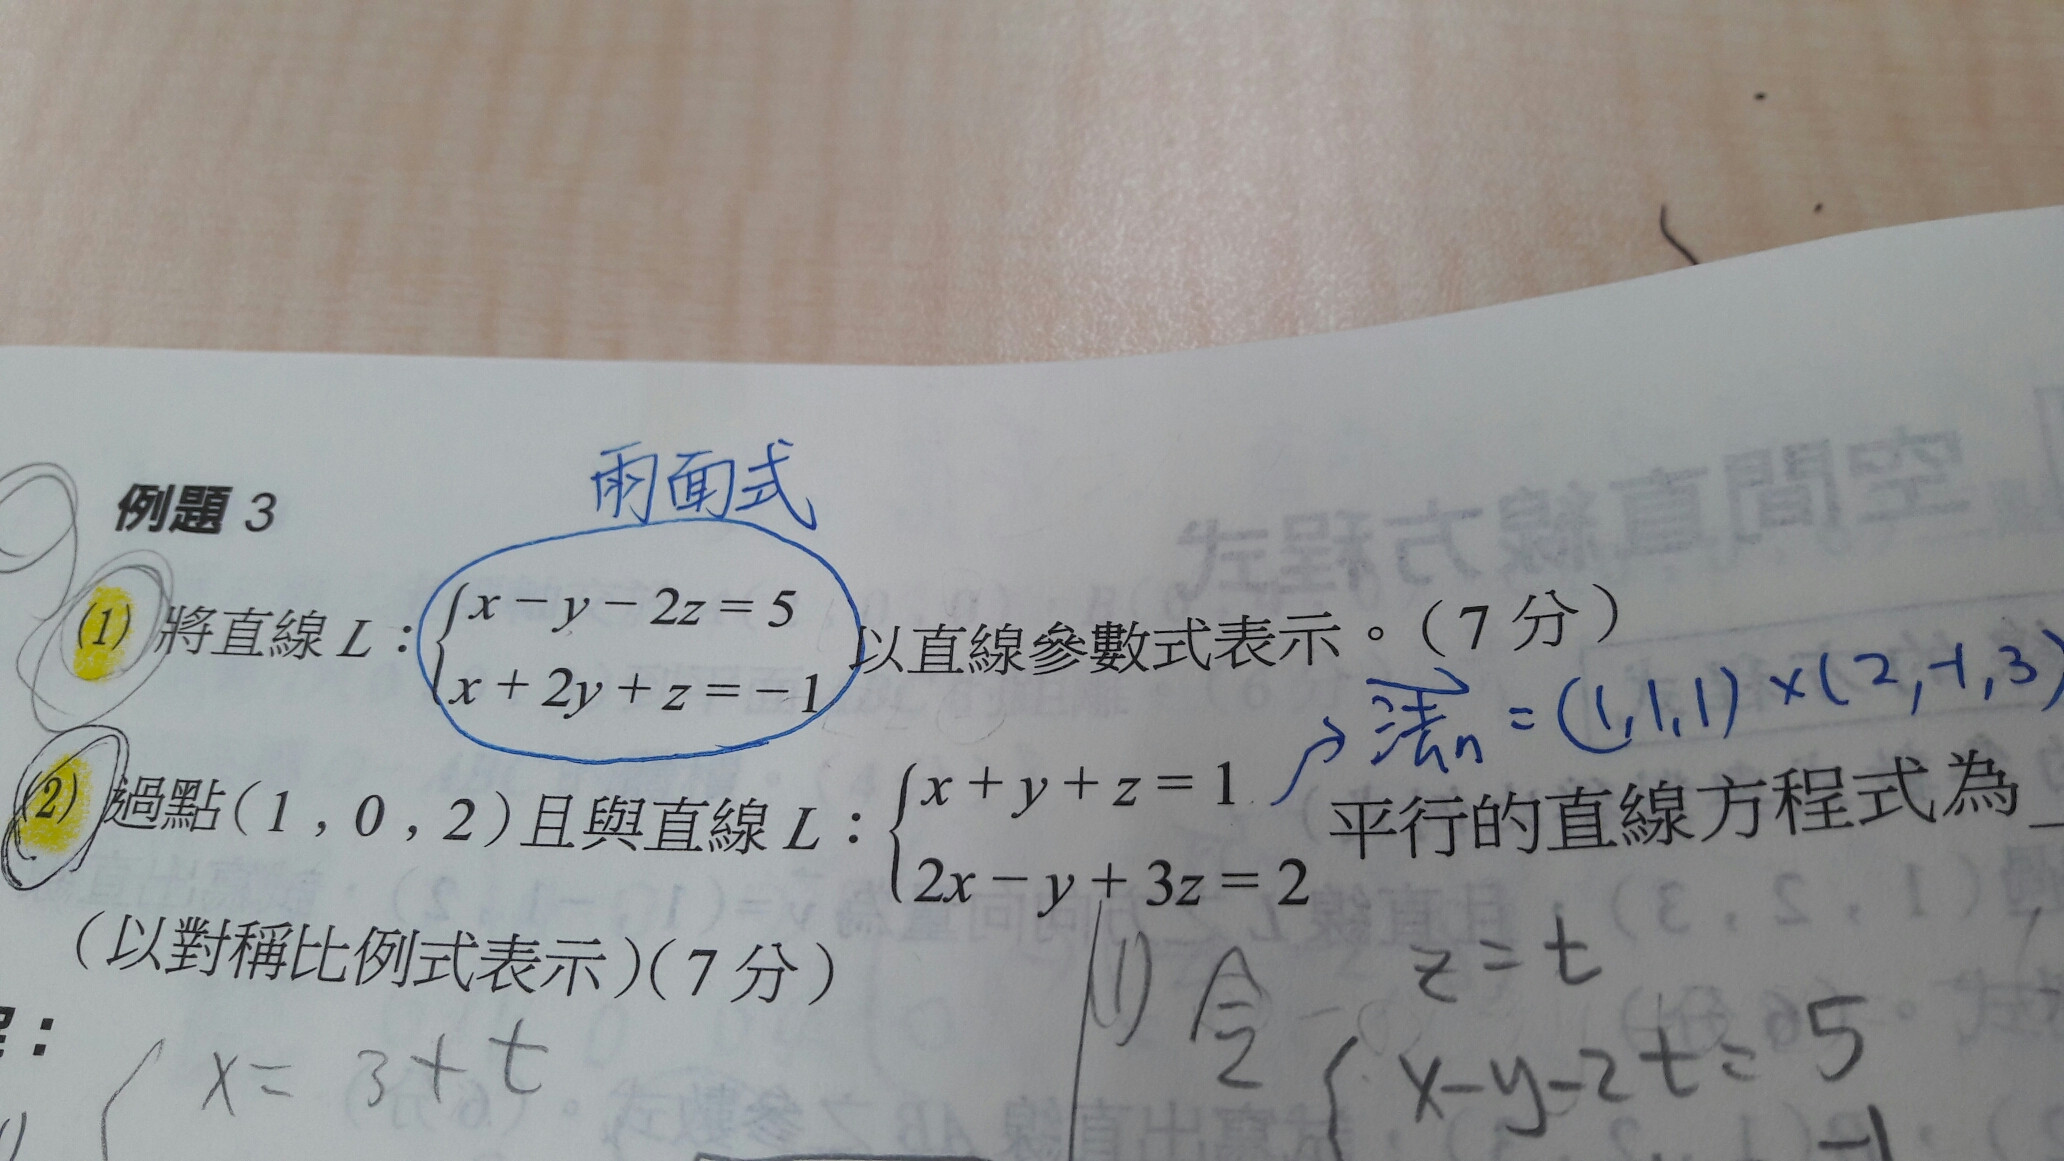 兩面式
例題 3
(1) 將直線 L : { x − y − 2z = 5
x + 2y + z = −1 以直線參數式表示。(7 分)
法n = (1,1,1) × (2,-1,3)
(2) 過點(1 , 0 , 2)且與直線 L : { x + y + z = 1
2x − y + 3z = 2 平行的直線方程式為
(以對稱比例式表示)(7 分)
x = 3 + t
(1) 令 z = t
{ x-y-2t = 5
-1
空間直線方程式